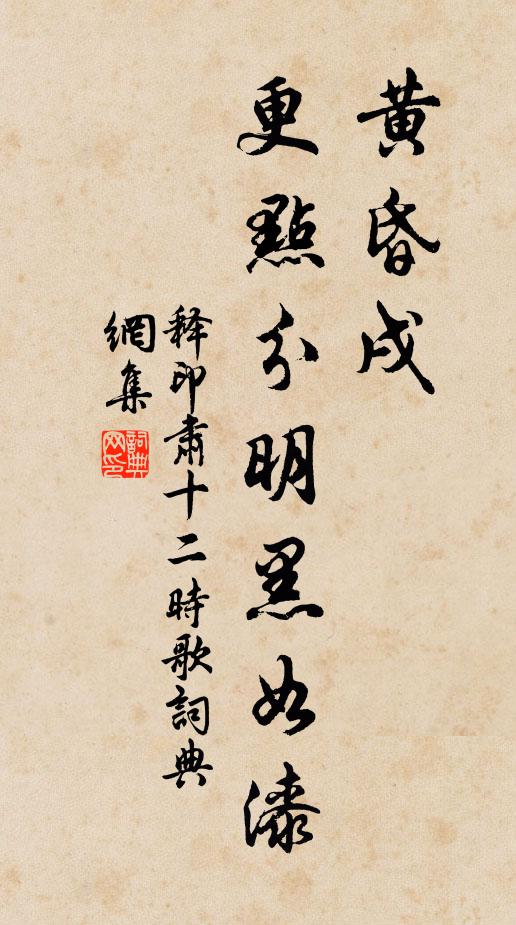 黃昏戌
更點分明黑如漆
释印肅十二時歌詞典
網集
詞典
网印